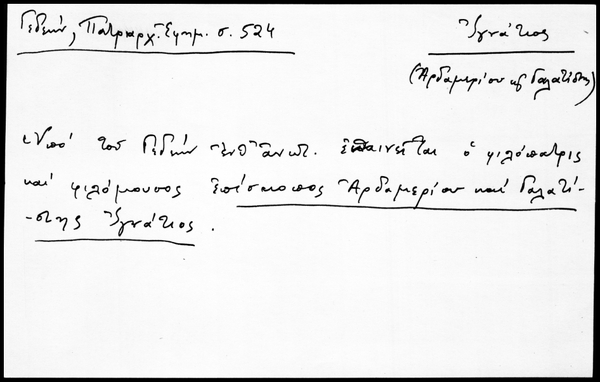 Γεδεών, Πατριαρχ. Ἐφημ. σ. 524
Ἰγνάτιος
(Ἀρδαμερίου κ Γαλατίστης)
Ὑπό τοῦ Γεδεών ἔνθ' ἀνωτ. ἐπαινεῖται ὁ φιλόπατρις
καί φιλόμουσος ἐπίσκοπος Ἀρδαμερίου καί Γαλατί-
-στης Ἰγνάτιος.